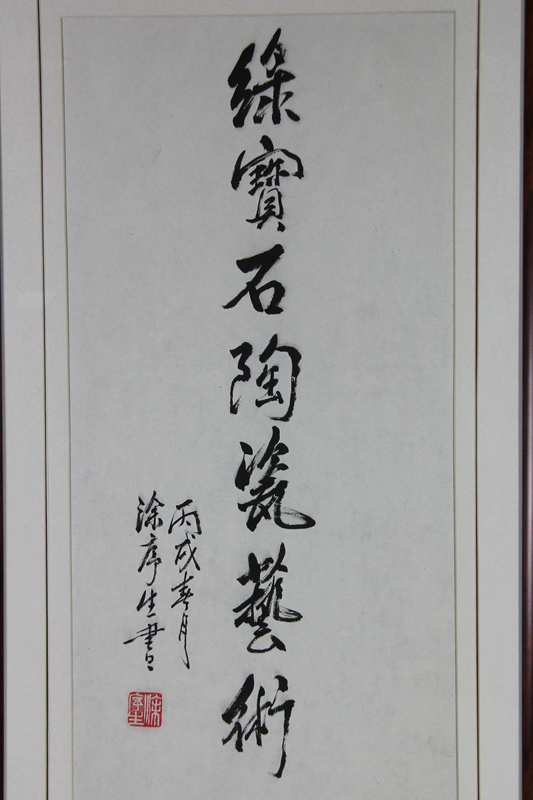 綠寶石陶瓷藝術
丙戌春月
涂序生書